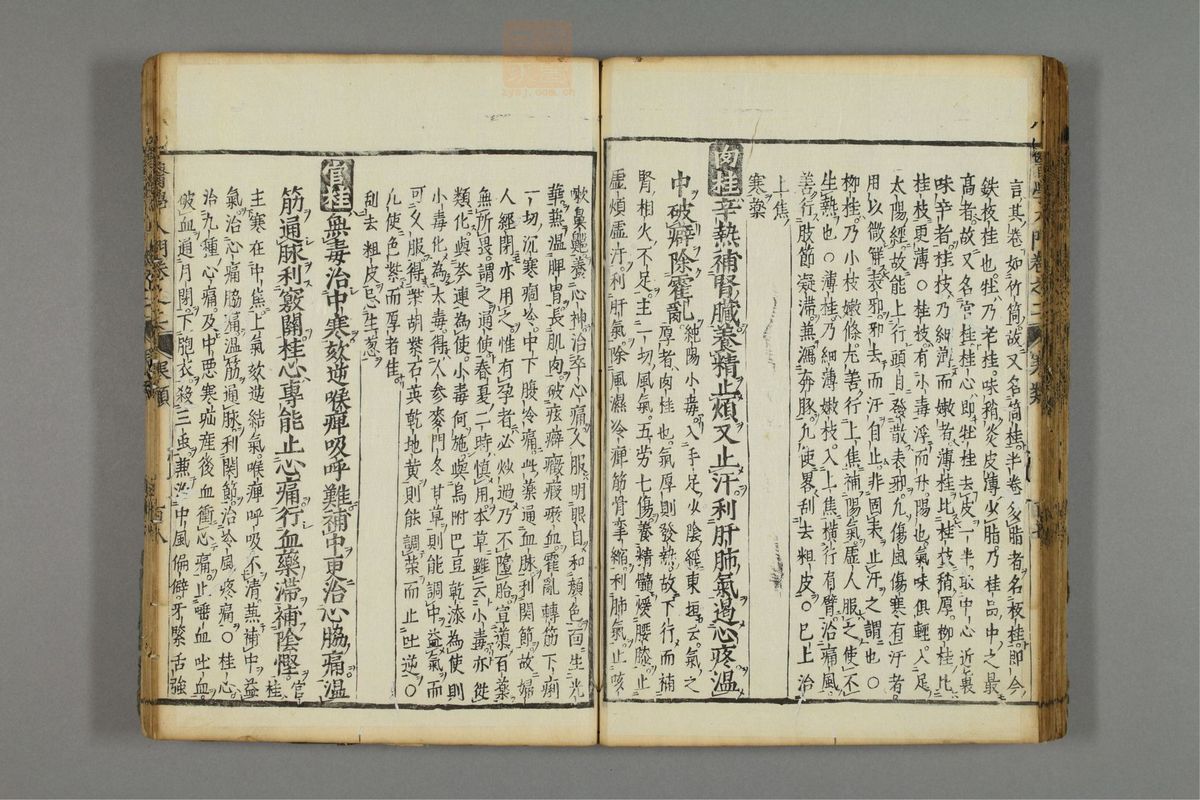 言其卷如竹筒故又名筒桂半卷多脂者名板桂即今
鉄枝桂也牡乃老桂味稍淡皮薄少脂乃桂品中之最
高者故又名官桂桂心即牡桂去皮一半取中心近裏
味辛者桂枝乃細消而嫩者薄桂比桂枝稍厚柳桂比
桂枝更薄○桂枝有小毒浮而升陽也氣味俱輕入足
太陽經故能上行頭目發散表邪凡傷風傷寒有汗者
用以微解表邪邪去而汗自止非固表止汗之謂也○
柳桂乃小枝嫩條尤善行上焦補陽氣虛人服之使不
生熱也○薄桂乃細薄嫩枝入上焦橫行肩臂治痛風
善行肢節凝滯兼瀉奔豚凡使畧刮去粗皮○已上治
上焦
寒藥
肉桂辛熱補腎臟養精止煩又止汗利肝肺氣過心疼温
中破癖除霍亂純陽小毒入手足少陰經東垣云氣之
厚者肉桂也氣厚則發熱故下行而補
腎相火不足主一切風氣五劳七傷養精髓煖腰膝止
虛煩虛汗利肝氣除風濕冷痹筋骨攣縮利肺氣止咳
嗽鼻齆養心神治卒心痛久服明眼目和顏色面生光
華兼温脾胃長肌肉破痃癖癥瘕瘀血霍亂轉筋下痢
一切沉寒痼冷中下腹冷痛此藥通血脉利関節故婦
人經閉亦用之惟有孕者必炒過乃不墮胎宣導百藥
無所畏謂之通使春夏二時慎用本草雖云小毒亦從
類化與芩連為使小毒何施與烏附巴豆乾漆為使則
小毒化為大毒得人參麥門冬甘草則能調中益氣而
可久服得柴胡紫石英乾地黄則能調榮而止吐逆○
凡使色紫而厚者佳
刮去粗皮忌生葱
官桂無毒治中寒欬逆喉痺吸呼難補中更治心脇痛温
筋通脉利竅關桂心專能止心痛行血藥滞補陰慳官
桂
主寒在中焦上氣欬逆結氣喉痺呼吸不清兼補中益
氣治心痛脇痛温筋通脉利関節治冷風疼痛○桂心
治九種心痛及中恶寒疝産後血衝心痛止唾血吐血
破血通月閉下胞衣殺三虫兼治中風偏僻牙緊舌強
醫學入門卷之二
寒類
zysj.com.cn